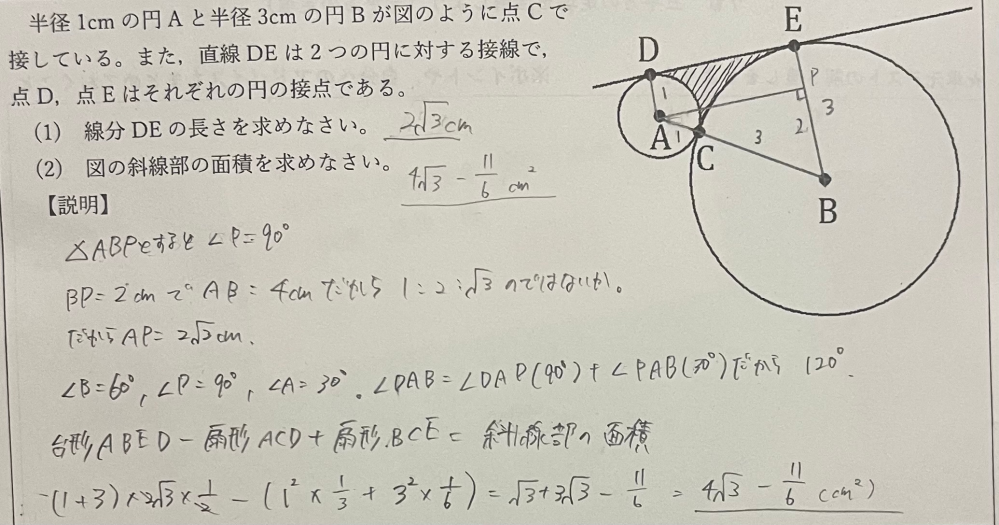 半径1cmの円Aと半径3cmの円Bが図のように点Cで
接している。また，直線DEは2つの円に対する接線で，
点D，点Eはそれぞれの円の接点である。
(1) 線分DEの長さを求めなさい。 2√3cm
(2) 図の斜線部の面積を求めなさい。 4√3 - 11/6 cm²
【説明】
△ABPとすると ∠P=90°
BP=2cmで AB=4cmだから 1:2:√3 のではないか。
だから AP= 2√3cm.
∠B=60°, ∠P=90°, ∠A=30°. ∠DAB=∠DAP(90°)+∠PAB(30°)だから 120°.
台形ABED - 扇形ACD + 扇形BCE = 斜線部の面積
(1+3)×2√3×1/2 - (1²×1/3 + 3²×1/6) = √3+3√3 - 11/6 = 4√3 - 11/6 (cm²)
D
E
P
1
3
A
1
2
C
3
B